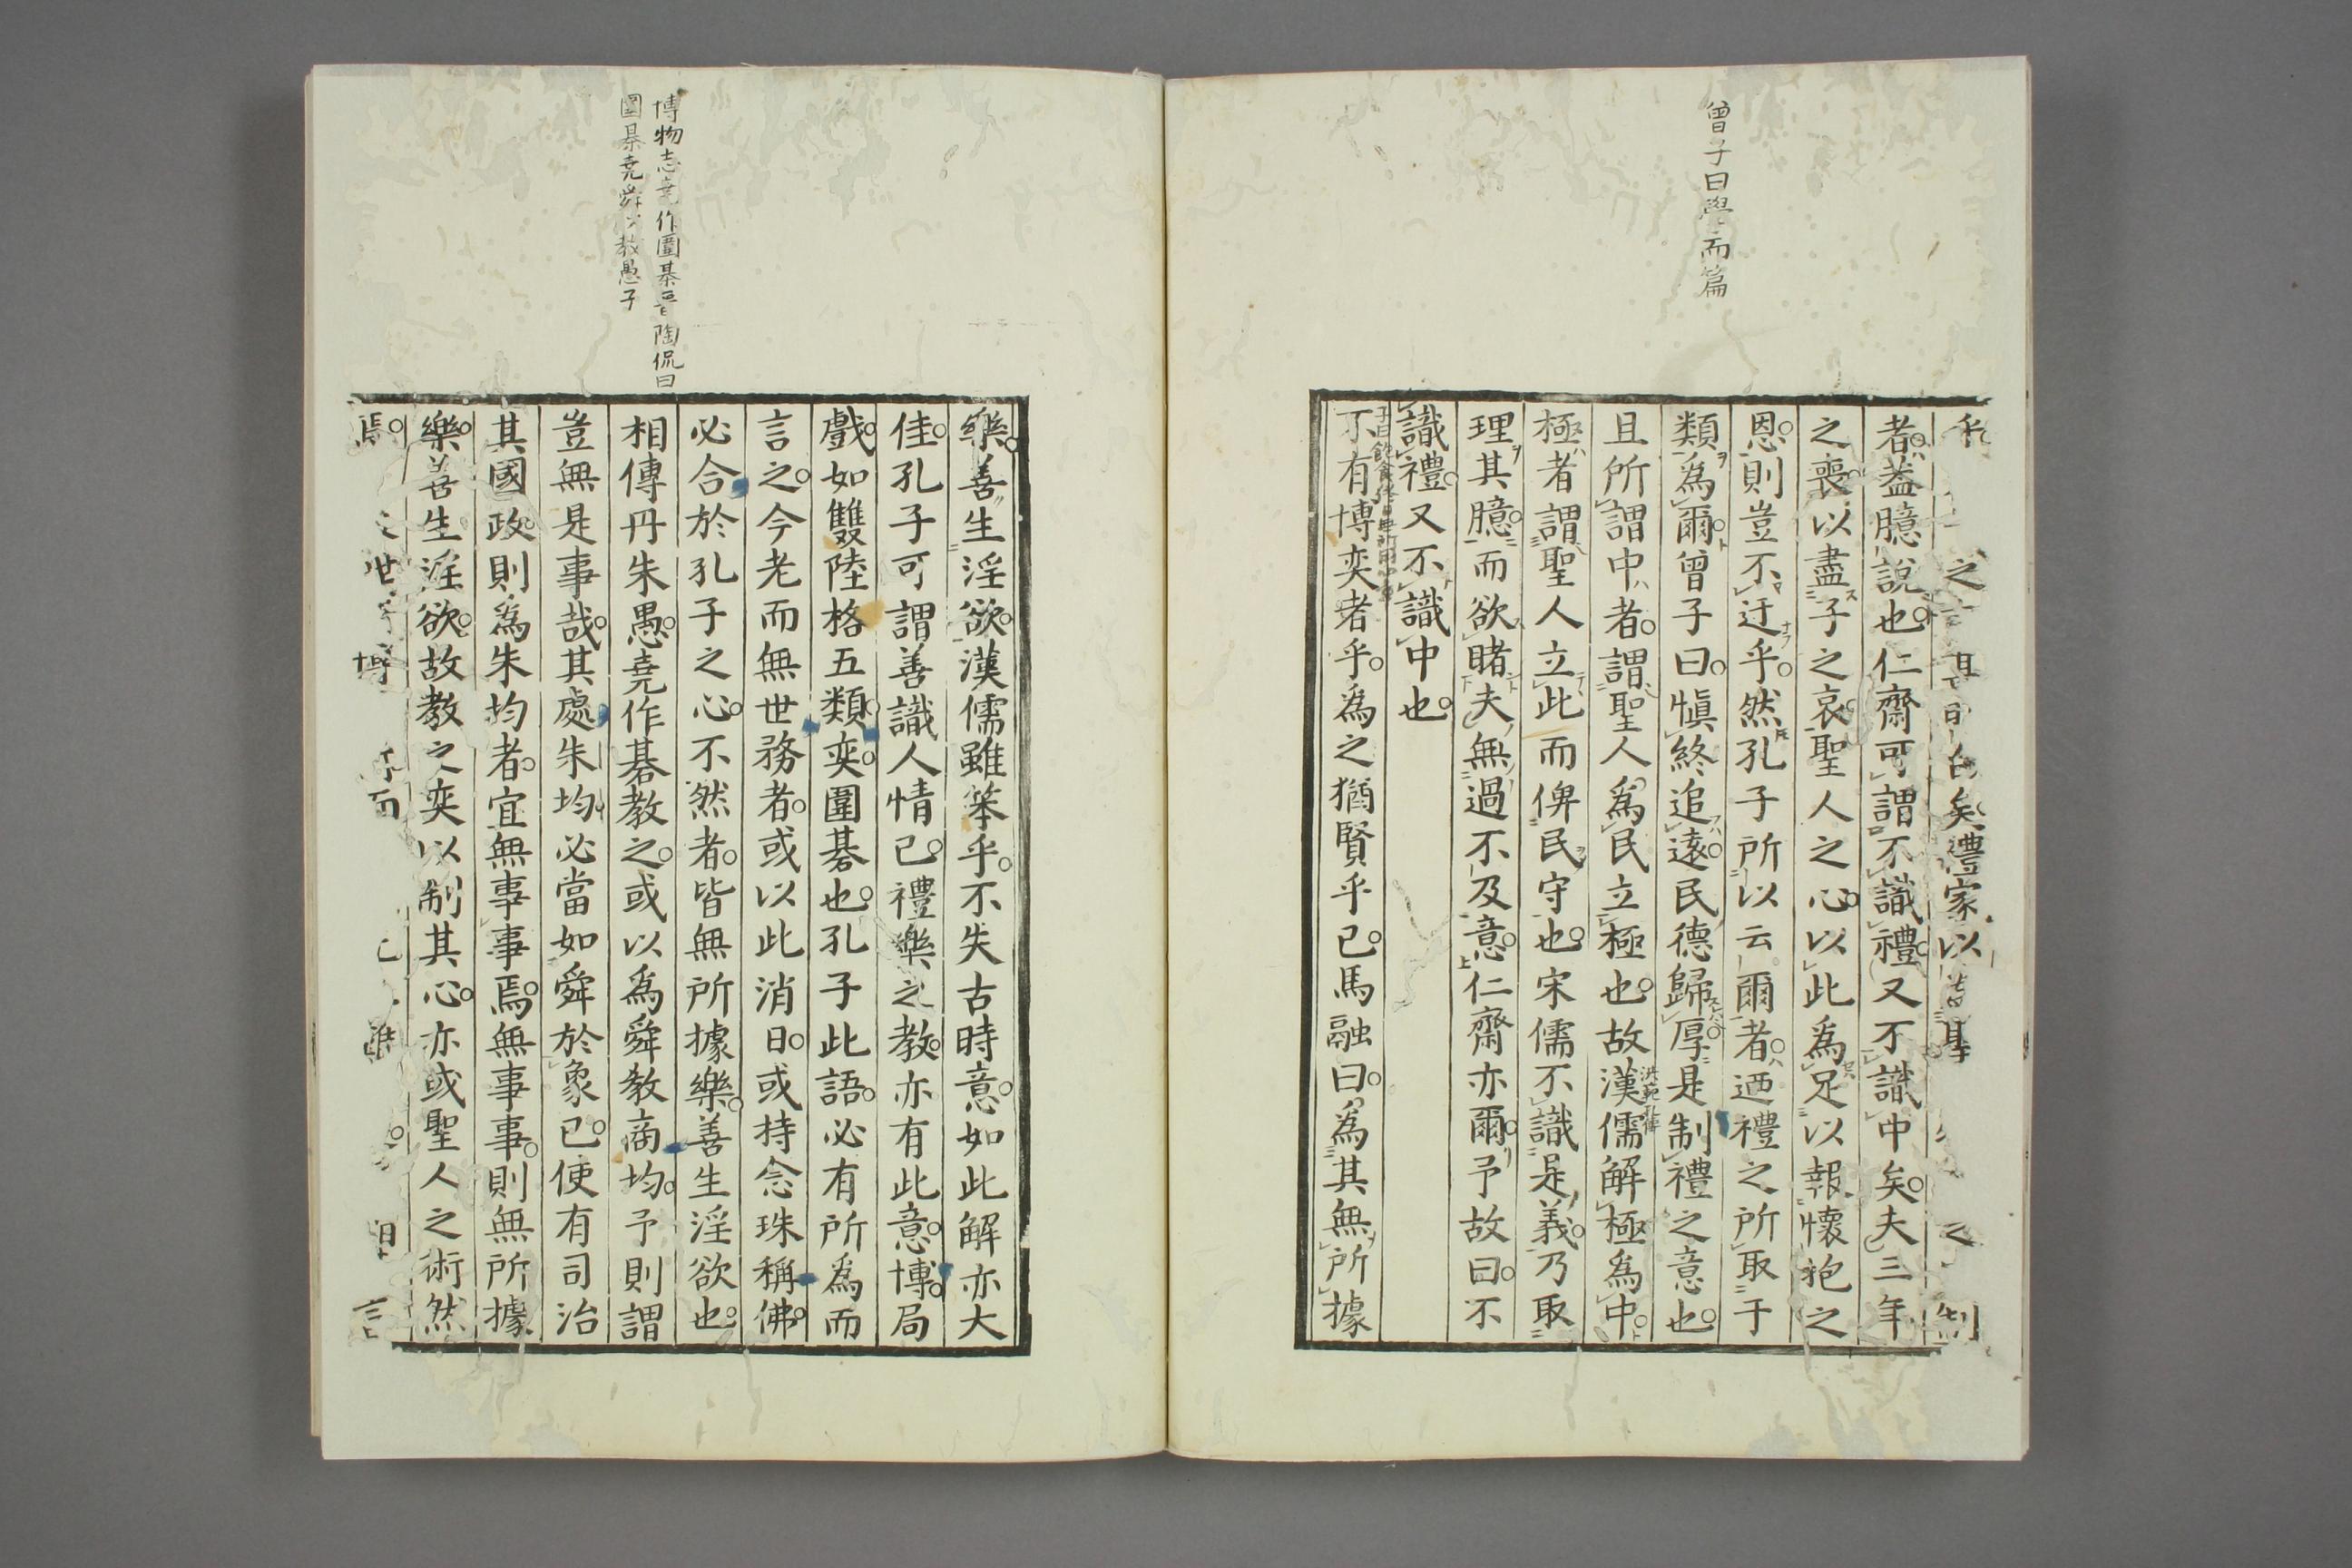 曾子曰學而篇
之 矣禮家以 聖 之 制
者蓋臆說也仁齋可謂不識禮又不識中矣夫三年
之喪以盡子之哀聖人之心以此爲足以報懷抱之
恩則豈不迂乎然孔子所以云爾者迺禮之所取于
類爲爾曾子曰愼終追遠民德歸厚是制禮之意也
且所謂中者謂聖人爲民立極也故漢儒解極爲中
極者謂聖人立此而俾民守也宋儒不識是義乃取
理其臆而欲睹夫無過不及意仁齋亦爾予故曰不
識禮又不識中也
子曰飽食終日無所用心
不有博奕者乎爲之猶賢乎已馬融曰爲其無所據
博物志堯作圍棊晉陶侃曰
圍棊堯舜以敎愚子
樂善生淫欲漢儒雖笨乎不失古時意如此解亦大
佳孔子可謂善識人情已禮樂之教亦有此意博局
戲如雙陸格五類奕圍碁也孔子此語必有所爲而
言之今老而無世務者或以此消日或持念珠稱佛
必合於孔子之心不然者皆無所據樂善生淫欲也
相傳丹朱愚堯作碁教之或以爲舜敎商均予則謂
豈無是事哉其處朱均必當如舜於象已使有司治
其國政則爲朱均者宜無事事焉無事事則無所據
樂善生淫欲故教之奕以制其心亦或聖人之術然
焉 世 博 而 言